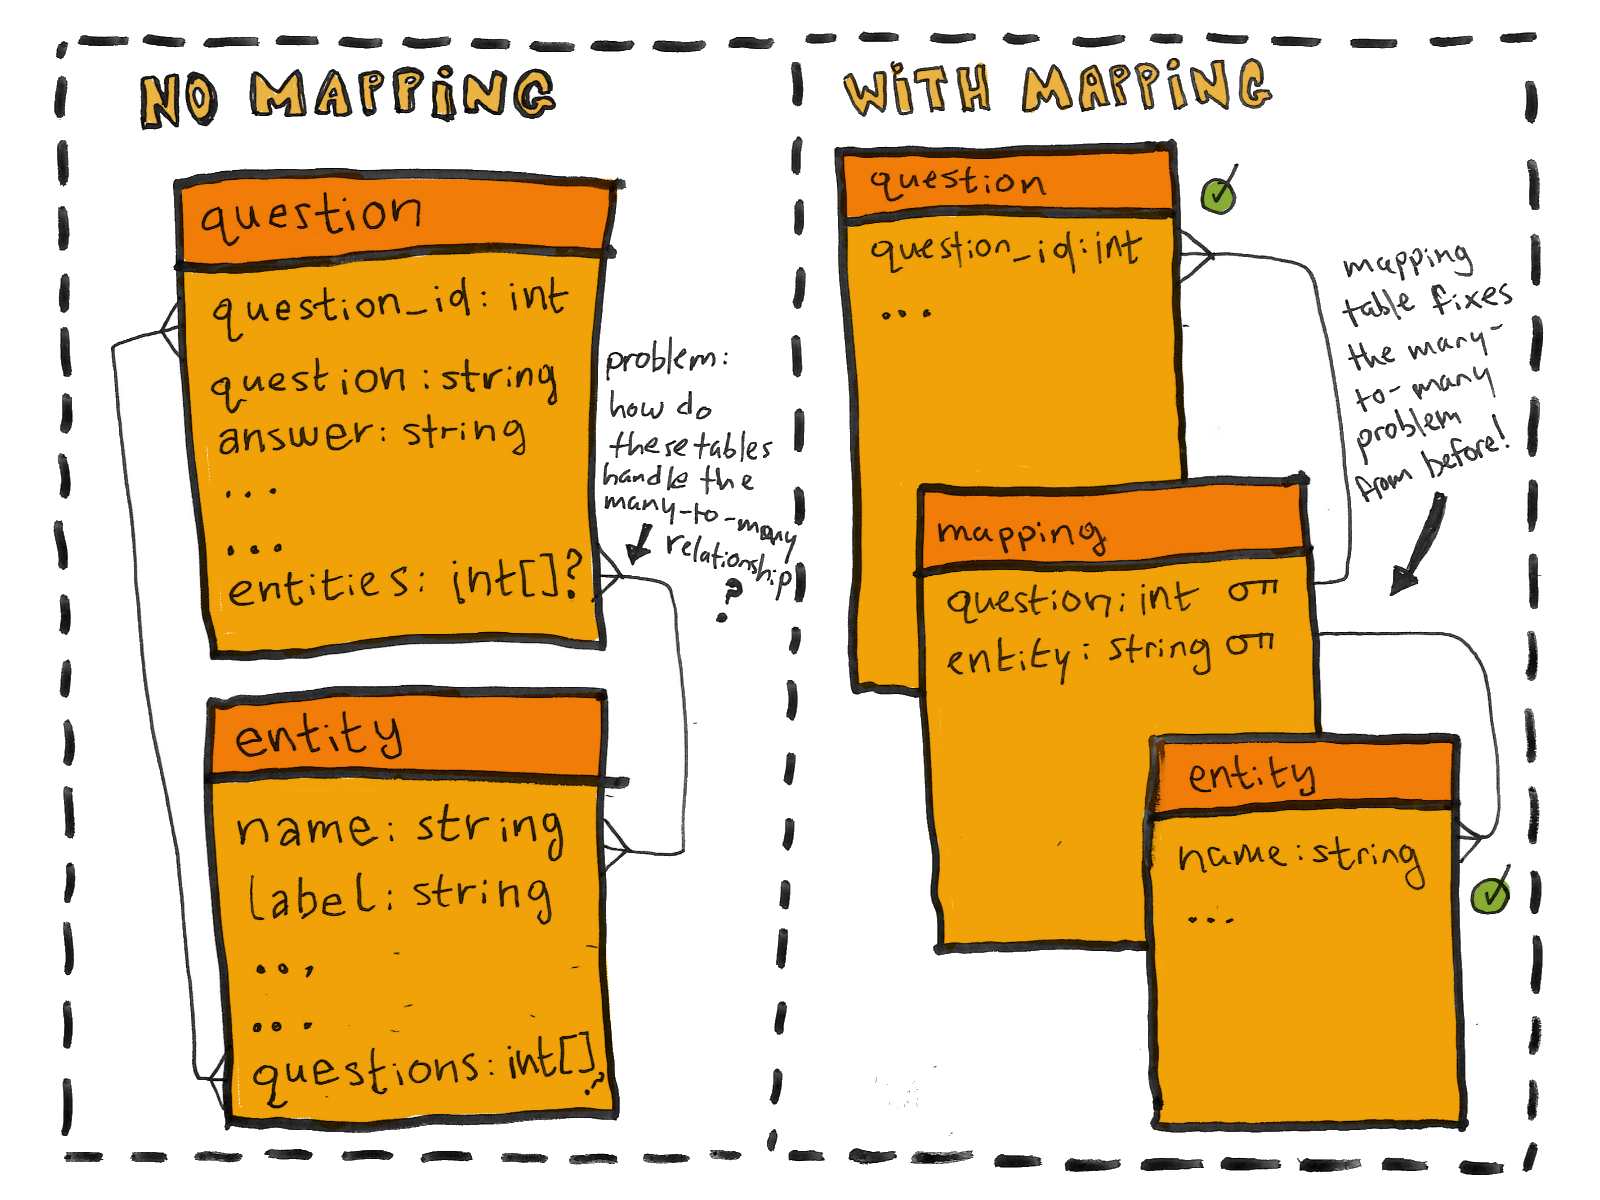 NO MAPPING
question
question_id: int
question: string
answer: string
...
...
entities: int[]?
problem:
how do
these tables
handle the
many-to-many
relationship
?
entity
name: string
label: string
...
...
questions: int[]
?
WITH MAPPING
question
question_id: int
...
mapping
table fixes
the many-
to-many
problem
from before!
mapping
question: int
entity: string
entity
name: string
...